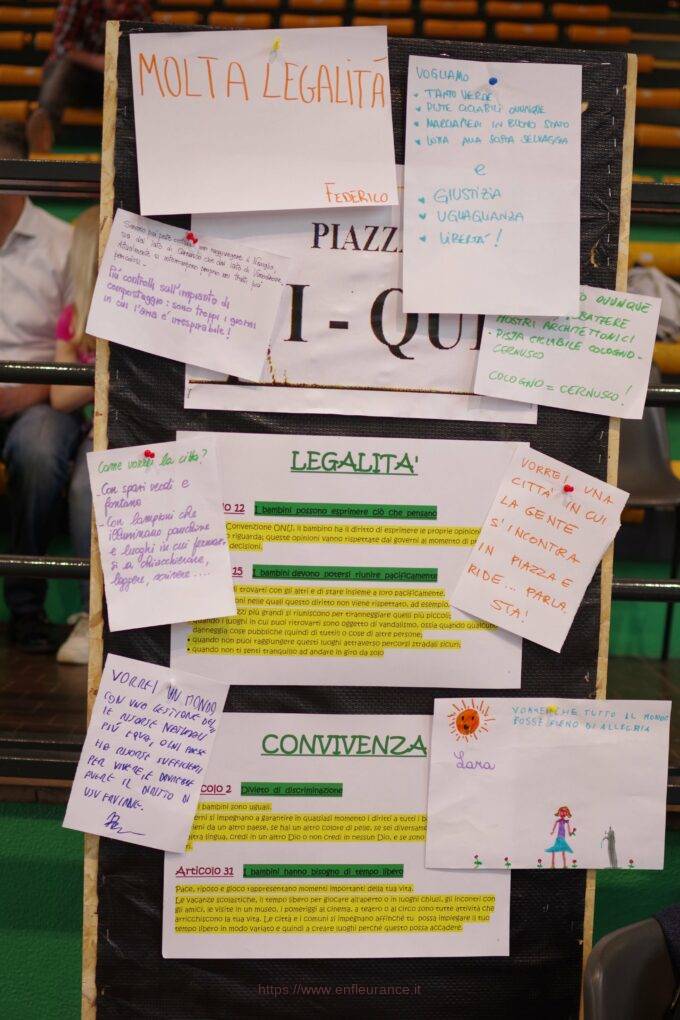 MOLTA LEGALITÀ
FEDERICO
VOGLIAMO
• TANTO VERDE
• PISTE CICLABILI OVUNQUE
• MARCIAPIEDI IN BUONO STATO
• LOTTA ALLA SOSTA SELVAGGIA
E
• GIUSTIZIA
• UGUAGLIANZA
• LIBERTÀ!
PIAZZA
I - QUI
Più controlli sull'impianto di
compostaggio: sono troppi i giorni
in cui l'aria è irrespirabile!
OVUNQUE
ABBATTERE
MOSTRI ARCHITETTONICI
- PISTA CICLABILE COLOGNO -
CERNUSCO
COLOGNO = CERNUSCO!
Come vorrei la città?
- Con spazi verdi e
fontane
- Con lampioni che
illuminano panchine
e luoghi in cui fermar-
si a chiacchierare,
leggere, scrivere ....
LEGALITA'
12 I bambini possono esprimere ciò che pensano
Convenzione ONU, il bambino ha il diritto di esprimere le proprie opinioni
riguarda; queste opinioni vanno rispettate dai governi al momento di
decisioni.
15 I bambini devono potersi riunire pacificamente
trovarti con gli altri e di stare insieme a loro pacificamente.
ioni nelle quali questo diritto non viene rispettato, ad esempio:
zzi più grandi si riuniscono per tiranneggiare quelli più piccoli
• quando i luoghi in cui puoi ritrovarti sono oggetto di vandalismo, ossia quando qualcuno
danneggia cose pubbliche (quindi di tutti) o cose di altre persone;
• quando non puoi raggiungere questi luoghi attraverso percorsi stradali sicuri;
• quando non ti senti tranquillo ad andare in giro da solo
VORREI UNA
CITTA' IN CUI
LA GENTE
S'INCONTRA
IN PIAZZA E
RIDE... PARLA.
STA!
VORREI UN MONDO
CON UNA GESTIONE DEL
LE RISORSE NATURALI
PIÙ EQUA, OGNI PAESE
HA RISORSE SUFFICIENTI
PER VIVERE E DOVREBBE
AVERE IL DIRITTO DI
USUFRUIRNE.
CONVIVENZA
colo 2 Divieto di discriminazione
i bambini sono uguali.
erni si impegnano a garantire in qualsiasi momento i diritti a tutti i
ieni da un altro paese, se hai un altro colore di pelle, se sei
altra lingua, credi in un altro Dio o non credi in nessun Dio, e se
Articolo 31 I bambini hanno bisogno di tempo libero
Pace, riposo e gioco rappresentano momenti importanti della tua vita.
Le vacanze scolastiche, il tempo libero per giocare all'aperto o in luoghi chiusi, gli incontri con
gli amici, le visite in un museo, i pomeriggi al cinema, a teatro o al circo sono tutte attività che
arricchiscono la tua vita. Le città e i comuni si impegnano affinché tu possa impiegare il tuo
tempo libero in modo variato e quindi a creare luoghi perché questo possa accadere.
VORREI CHE TUTTO IL MONDO
FOSSE PIENO DI ALLEGRIA
Lara
https://www.enfleurance.it